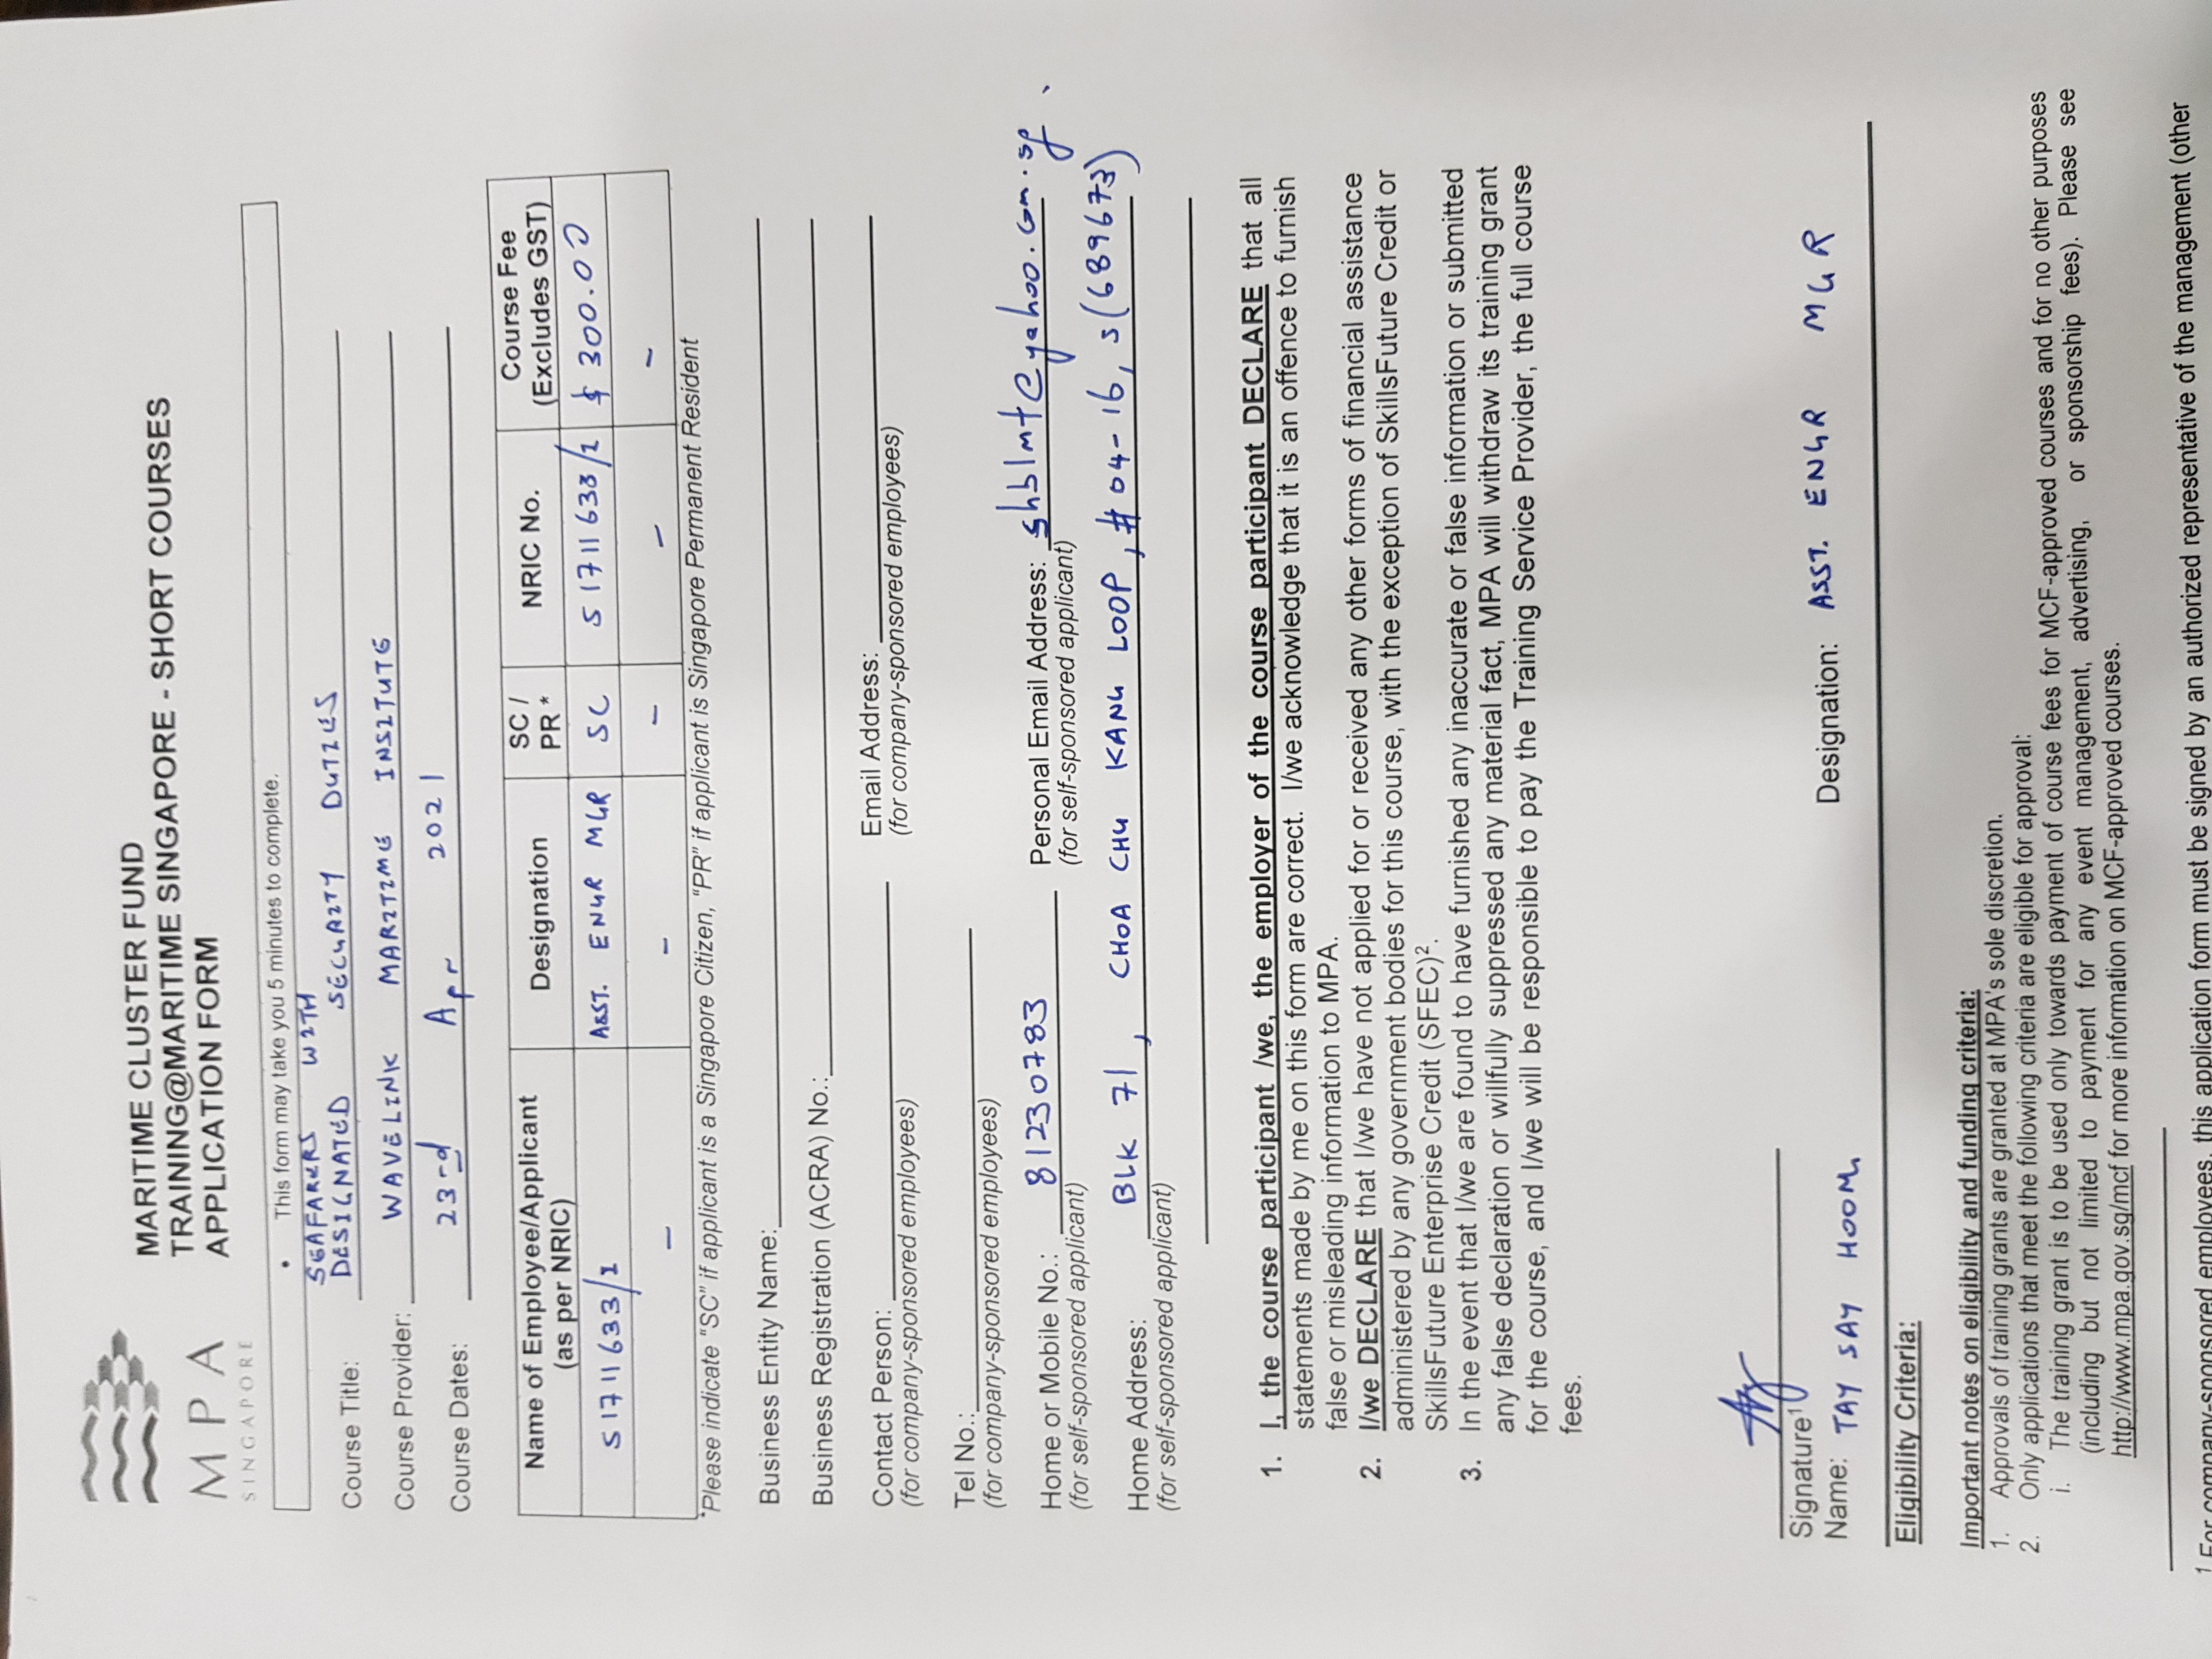 MPA
SINGAPORE
MARITIME CLUSTER FUND
TRAINING@MARITIME SINGAPORE - SHORT COURSES
APPLICATION FORM
• This form may take you 5 minutes to complete.
SEAFARERS WITH
Course Title: DESIGNATED SECURITY DUTIES
Course Provider: WAVELINK MARITIME INSITUTE
Course Dates: 23rd Apr 2021
Name of Employee/Applicant (as per NRIC) Designation SC / PR* NRIC No. Course Fee (Excludes GST)
S1711633/I ASST. ENGR MGR SC S1711633/I $300.00
- - - - -
*Please indicate "SC" if applicant is a Singapore Citizen, "PR" if applicant is Singapore Permanent Resident
Business Entity Name:
Business Registration (ACRA) No.:
Contact Person: Email Address:
(for company-sponsored employees) (for company-sponsored employees)
Tel No.:
(for company-sponsored employees)
Home or Mobile No.: 81230783 Personal Email Address: shblmt@yahoo.com.sg
(for self-sponsored applicant) (for self-sponsored applicant)
Home Address: BLK 71, CHOA CHU KANG LOOP, #04-16, S(689673)
(for self-sponsored applicant)
1. I, the course participant /we, the employer of the course participant DECLARE that all
statements made by me on this form are correct. I/we acknowledge that it is an offence to furnish
false or misleading information to MPA.
2. I/we DECLARE that I/we have not applied for or received any other forms of financial assistance
administered by any government bodies for this course, with the exception of SkillsFuture Credit or
SkillsFuture Enterprise Credit (SFEC)².
3. In the event that I/we are found to have furnished any inaccurate or false information or submitted
any false declaration or willfully suppressed any material fact, MPA will withdraw its training grant
for the course, and I/we will be responsible to pay the Training Service Provider, the full course
fees.
Signature¹
Name: TAY SAY HOONG Designation: ASST. ENGR MGR
Eligibility Criteria:
Important notes on eligibility and funding criteria:
1. Approvals of training grants are granted at MPA's sole discretion.
2. Only applications that meet the following criteria are eligible for approval:
i. The training grant is to be used only towards payment of course fees for MCF-approved courses and for no other purposes
(including but not limited to payment for any event management, advertising, or sponsorship fees). Please see
http://www.mpa.gov.sg/mcf for more information on MCF-approved courses.
¹ For company-sponsored employees, this application form must be signed by an authorized representative of the management (other